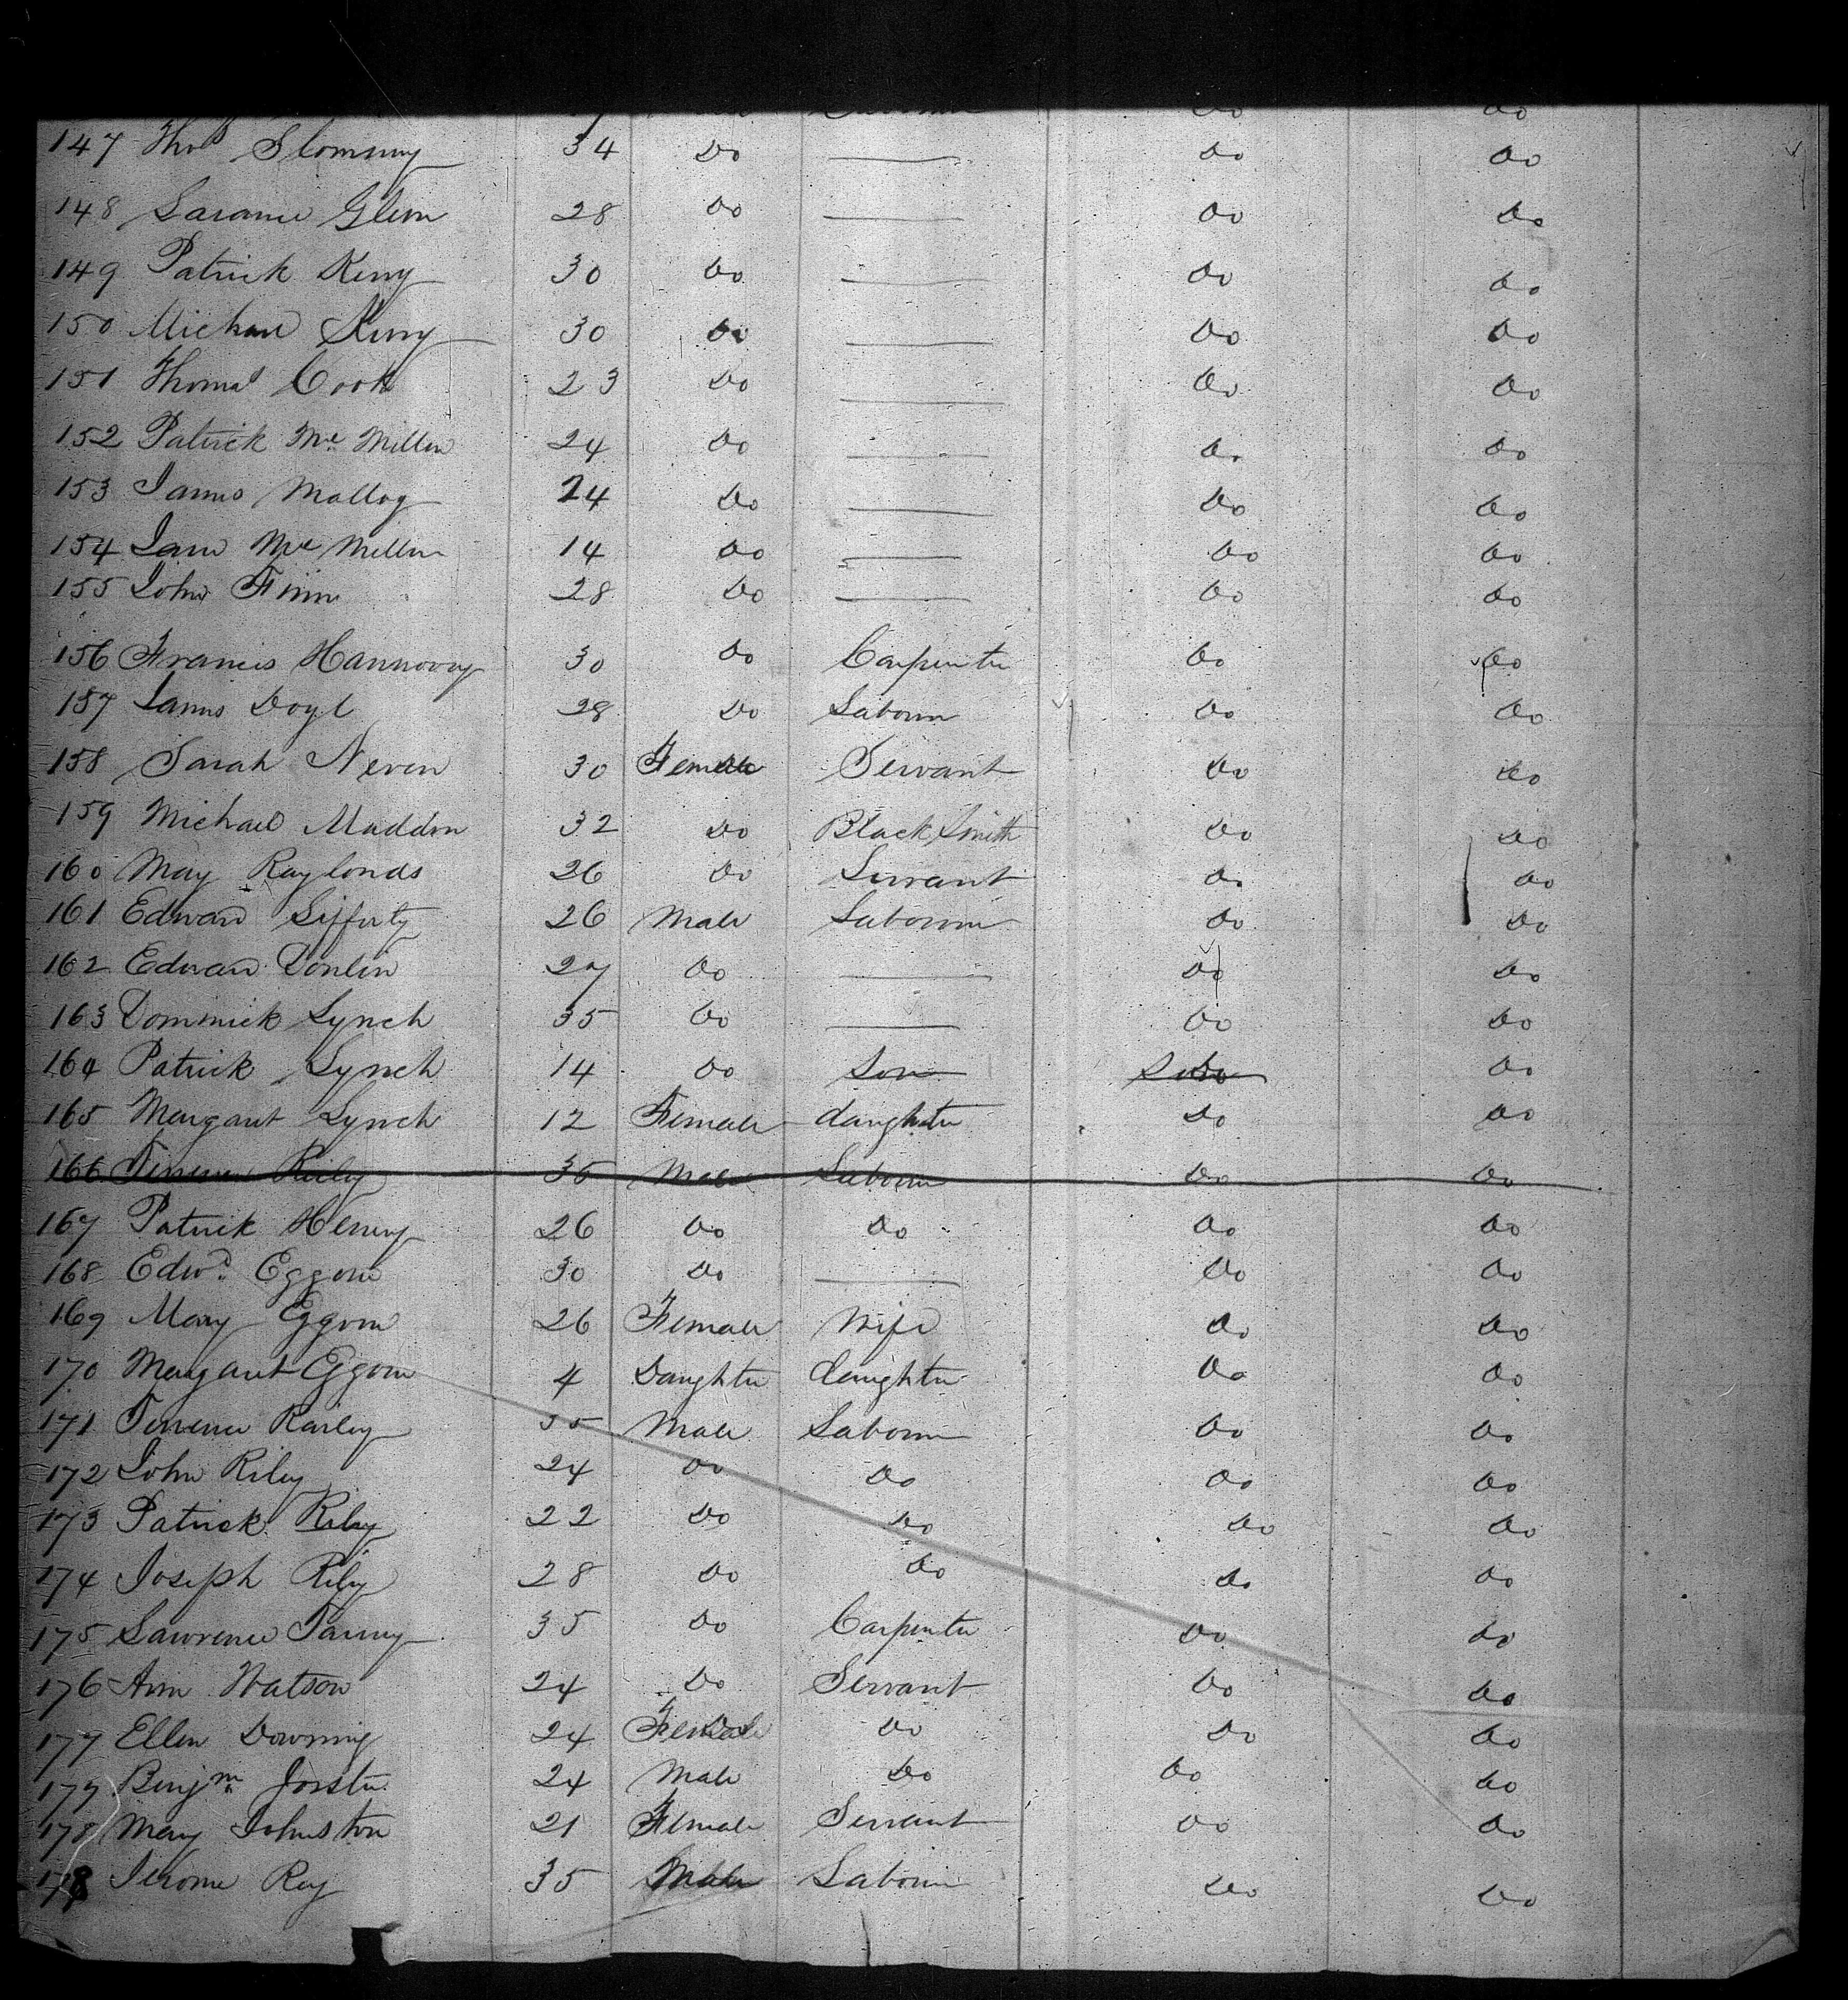 Do Do
147 Thos Slommy 34 Do — Do Do
148 Glenn 28 Do — Do Do
149 Patrick Kerry 30 Do — Do Do
150 Michael Kerry 30 Do — Do Do
151 Thomas Cook 23 Do — Do Do
152 Patrick Mc Millen 24 Do — Do Do
153 James Malloy 24 Do — Do Do
154 Jane Mc Millen 14 Do — Do Do
155 John Finn 28 Do — Do Do
156 Francis Hannovry 30 Do Carpenter Do Do
157 James Doyl 28 Do Laborer Do Do
158 Sarah Neven 30 Female Servant Do Do
159 Michael Maddon 32 Do Black Smith Do Do
160 Mary Raylonds 26 Do Servant Do Do
161 Edward Lifferty 26 Male Laborer Do Do
162 Edward Donlin 27 Do — Do Do
163 Dominick Lynch 35 Do — Do Do
164 Patrick Lynch 14 Do Son Do
165 Margaret Lynch 12 Female daughter Do Do
166 Terrence Riley 35 Male Laborer Do Do
167 Patrick Henry 26 Do Do Do Do
168 Edwd. Eggom 30 Do — Do Do
169 Mary Eggom 26 Female Wife Do Do
170 Margaret Eggom 4 Daughter daughter Do Do
171 Terrence Rariley 35 Male Laborer Do Do
172 John Riley 24 Do Do Do Do
173 Patrick Riley 22 Do Do Do Do
174 Joseph Riley 28 Do Do Do Do
175 Lawrence Tanny 35 Do Carpenter Do Do
176 Ann Watson 24 Do Servant Do Do
177 Ellen Downing 24 Female Do Do Do
177 Benjm Forster 24 Male Do Do Do
178 Mary Johnston 21 Female Servant Do Do
178 Jerome Ray 35 Male Laborer Do Do